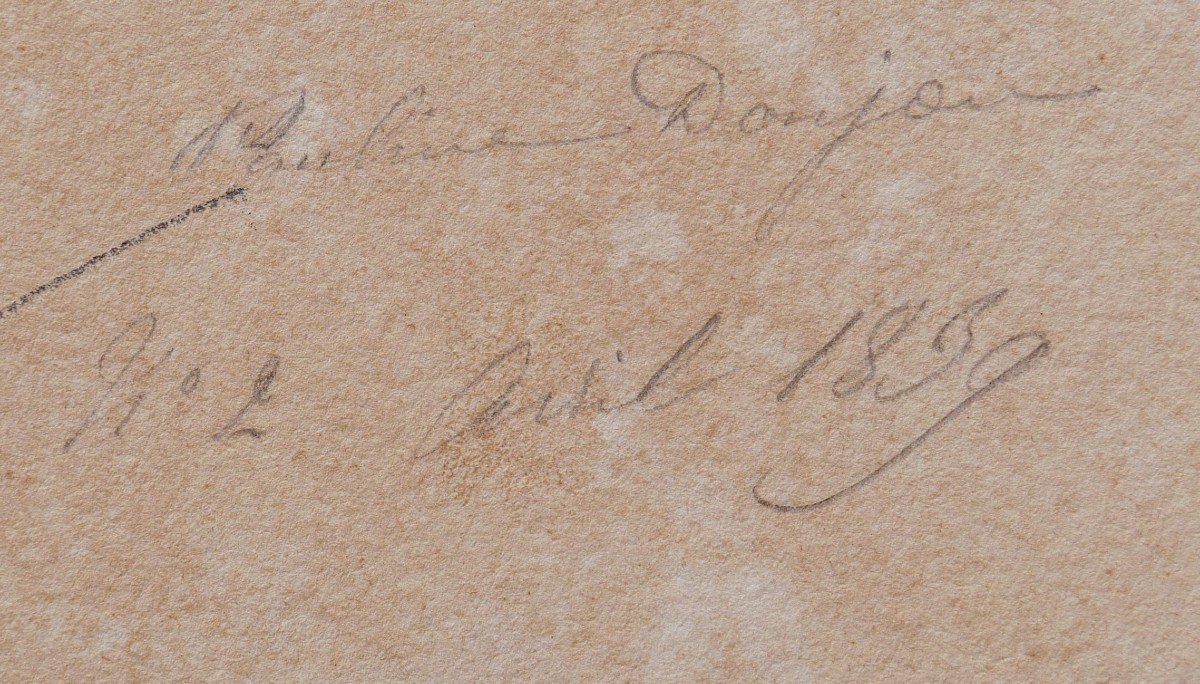 Pauline Donjon
No 2 Avril 1839